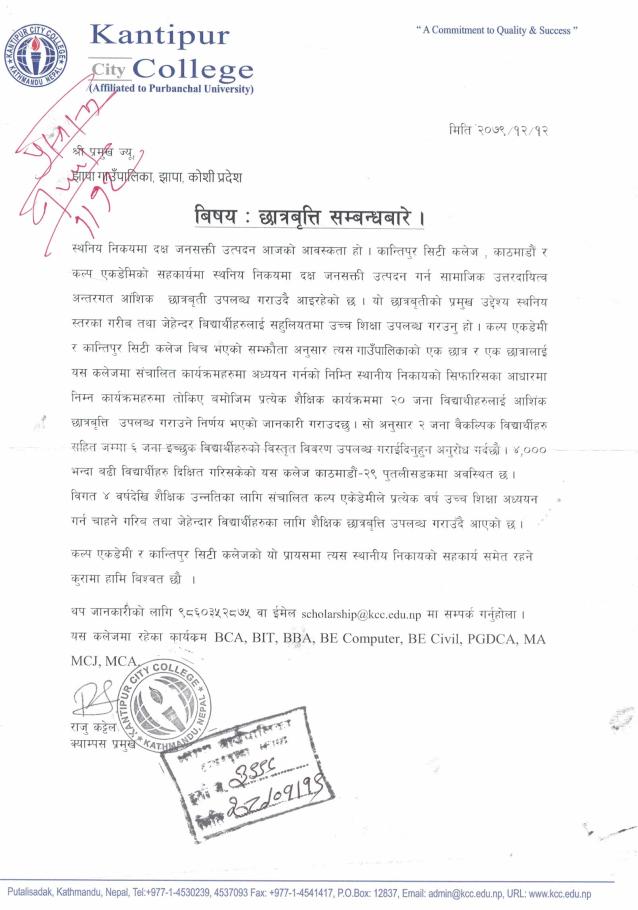 KANTIPUR CITY COLLEGE
KATHMANDU, NEPAL
Kantipur
City College
(Affiliated to Purbanchal University)
" A Commitment to Quality & Success "
मिति २०७९/१२/१२
श्री प्रमुख ज्यू,
झापा गाउँपालिका, झापा, कोशी प्रदेश
बिषय : छात्रबृत्ति सम्बन्धबारे ।
स्थनिय निकयमा दक्ष जनसक्ती उत्पदन आजको आवस्कता हो । कान्तिपुर सिटी कलेज , काठमाडौं र
कल्प एकडेमिको सहकार्यमा स्थनिय निकयमा दक्ष जनसक्ती उत्पदन गर्न सामाजिक उत्तरदायित्व
अन्तरगत आंशिक छात्रबृती उपलब्ध गराउदै आइरहेको छ । यो छात्रबृतीको प्रमुख उद्देश्य स्थनिय
स्तरका गरीब तथा जेहेन्दर बिद्यार्थीहरुलाई सहुलियतमा उच्च शिक्षा उपलब्ध गरउनु हो । कल्प एकडेमी
र कान्तिपुर सिटी कलेज बिच भएको सम्झौता अनुसार त्यस गाउँपालिकाको एक छात्र र एक छात्रालाई
यस कलेजमा संचालित कार्यक्रमहरुमा अध्ययन गर्नको निम्ति स्थानीय निकायको सिफारिसका आधारमा
निम्न कार्यक्रमहरुमा तोकिए बमोजिम प्रत्येक शैक्षिक कार्यक्रममा २० जना बिद्यार्थीहरुलाई आशिंक
छात्रबृत्ति उपलब्ध गराउने निर्णय भएको जानकारी गराउदछु । सो अनुसार २ जना वैकल्पिक विद्यार्थीहरु
सहित जम्मा ६ जना इच्छुक बिद्यार्थीहरुको बिस्तृत विवरण उपलब्ध गराईदिनुहुन अनुरोध गर्दछौ । ४,०००
भन्दा बढी विद्यार्थीहरु दिक्षित गरिसकेको यस कलेज काठमाडौं-२९ पुतलीसडकमा अवस्थित छ ।
विगत ४ वर्षदेखि शैक्षिक उन्नतिका लागि संचालित कल्प एकेडेमीले प्रत्येक वर्ष उच्च शिक्षा अध्ययन
गर्न चाहने गरिब तथा जेहेन्दार बिद्यार्थीहरुका लागि शैक्षिक छात्रबृत्ति उपलब्ध गराउँदै आएको छ ।
कल्प एकडेमी र कान्तिपुर सिटी कलेजको यो प्रायसमा त्यस स्थानीय निकायको सहकार्य समेत रहने
कुरामा हामि बिश्वत छौ ।
थप जानकारीको लागि ९८६०३५२८७५ वा ईमेल scholarship@kcc.edu.np मा सम्पर्क गर्नुहोला ।
यस कलेजमा रहेका कार्यकम BCA, BIT, BBA, BE Computer, BE Civil, PGDCA, MA
MCJ, MCA.
KANTIPUR CITY COLLEGE
KATHMANDU, NEPAL
राजु कट्टेल
क्याम्पस प्रमुख
Putalisadak, Kathmandu, Nepal, Tel:+977-1-4530239, 4537093 Fax: +977-1-4541417, P.O.Box: 12837, Email: admin@kcc.edu.np, URL: www.kcc.edu.np